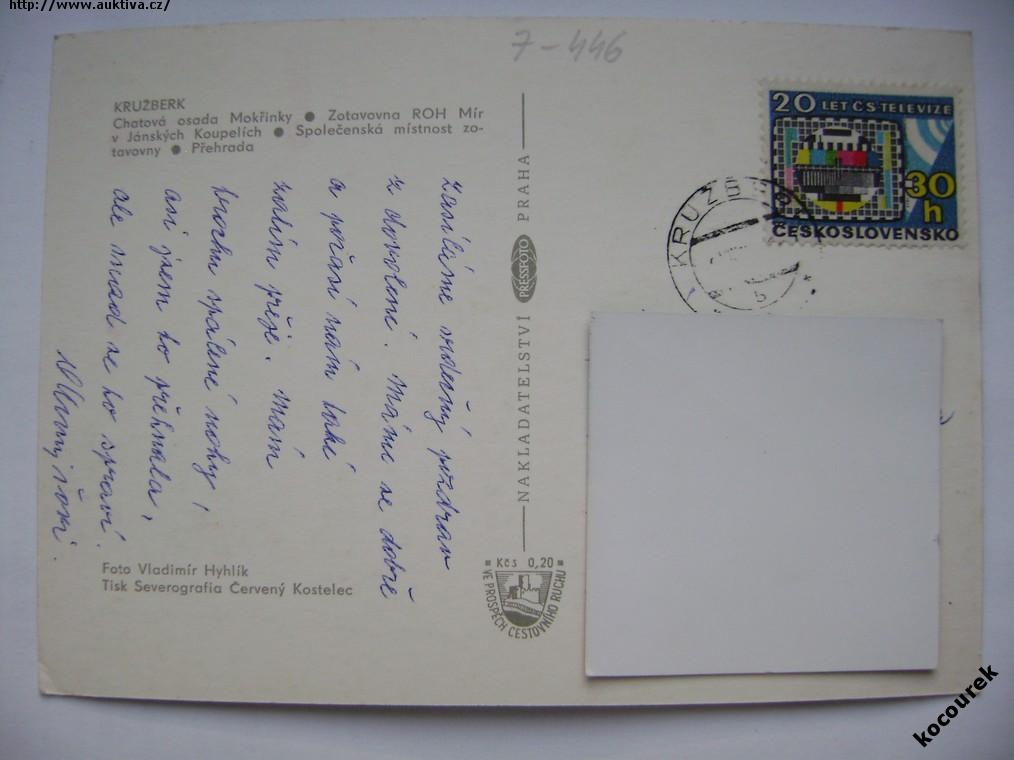 http://www.auktiva.cz/
7-446
KRUŽBERK
Chatová osada Mokřinky ● Zotavovna ROH Mír
v Jánských Koupelích ● Společenská místnost zo-
tavovny ● Přehrada
zasíláme srdečný pozdrav
z dovolené. Máme se dobře
a počasí nám také
zatím přeje. Mám
trochu spálené nohy,
asi jsem to přehnala,
ale snad se to spraví.
Foto Vladimír Hyhlík
Tisk Severografia Červený Kostelec
NAKLADATELSTVÍ PRESSFOTO PRAHA
Kčs 0,20
VE PROSPĚCH CESTOVNÍHO RUCHU
20 LET ČS TELEVIZE
30
h
ČESKOSLOVENSKO
KRUŽB
b
kocourek